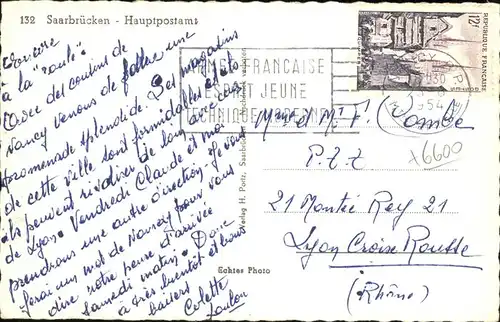 132 Saarbrücken - Hauptpostamt
à la "
Avec des cousins de
Nancy venons de faire une
promenade splendide. Les magasins
de cette ville sont formidables et
ils peuvent rivaliser de loin avec ceux
de Lyon. Vendredi Claude et moi
prendrons une autre direction. Je vous
ferai un mot de Nancy pour vous
dire notre heure d'arrivée
samedi matin. Donc
à très bientôt et bons
baisers Colette
Verlag H. Portz, Saarbrücken
Echtes Photo
ARMÉE FRANÇAISE
EST JEUNE
TECHNIQUE MODERNE
12f
REPUBLIQUE FRANÇAISE
54
Mme et Mr F. Combe
P.T.T
21 Montée Rey 21
Lyon Croix Rousse
(Rhône)
x6600